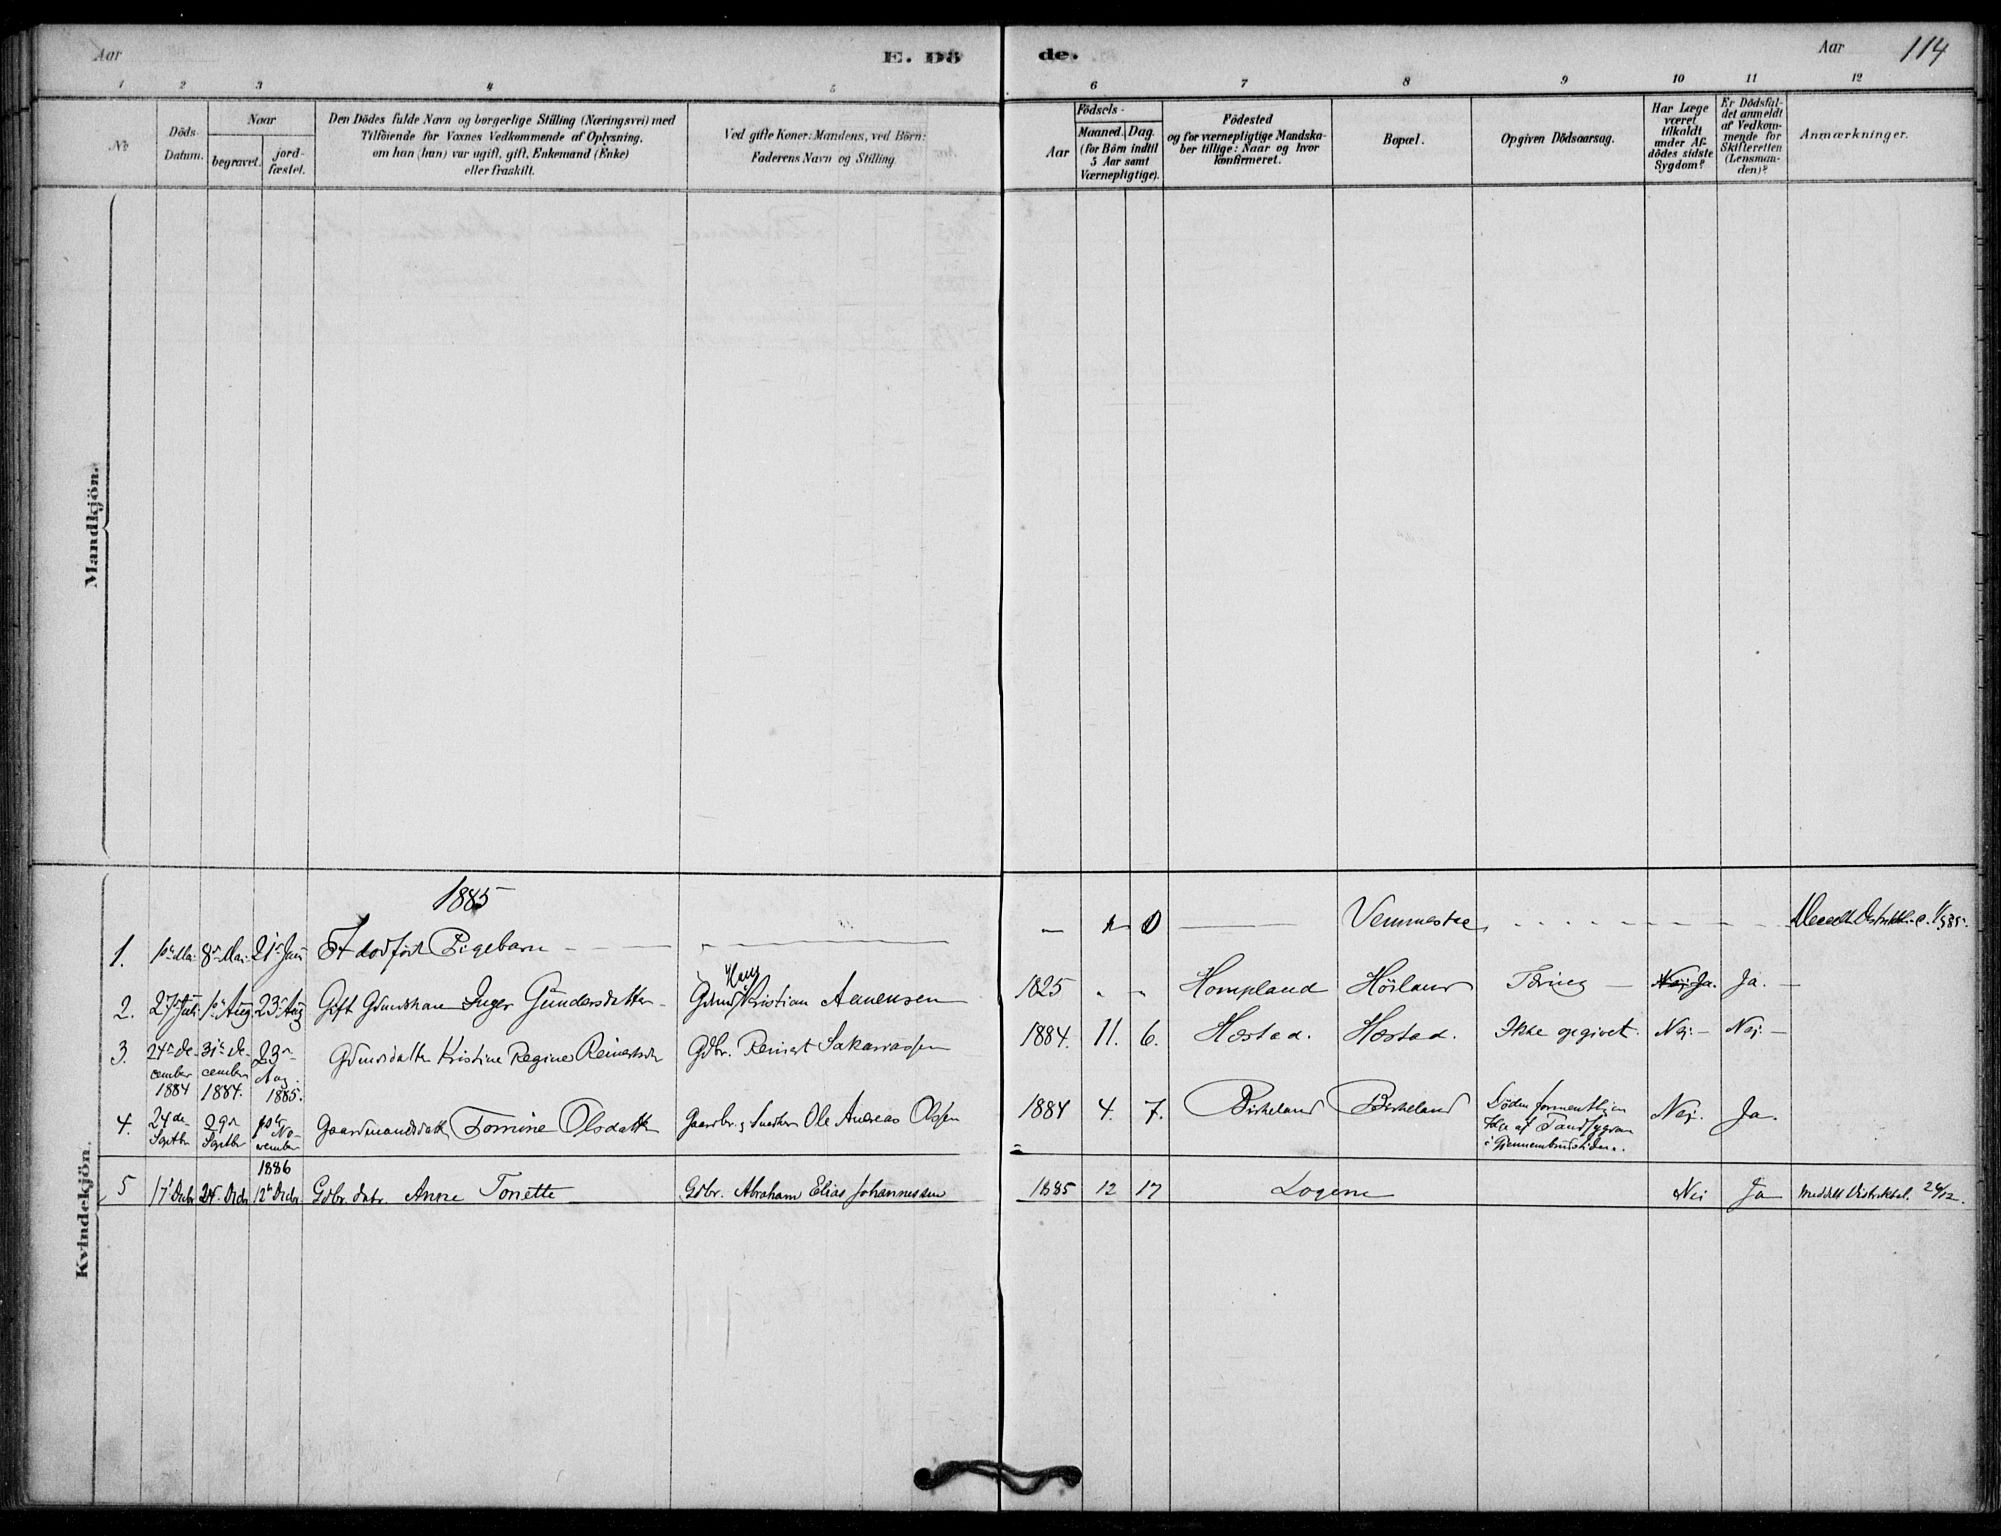 Aar
E. Dö
de.
Aar 114
1 2 3 4 5 6 7 8 9 10 11 12
No
Döds Datum.
Naar
begravet.
jord-
fæstet.
Den Dödes fulde Navn og borgerlige Stilling (Næringsvei) med
Tilföiende for Voxnes Vedkommende af Oplysning,
om han (hun) var ugift, gift, Enkemand (Enke)
eller fraskilt.
Ved gifte Koner: Mandens, ved Börn:
Faderens Navn og Stilling
Födsels-
Aar
Maaned. Dag.
(for Börn indtil
5 Aar samt
Værnepligtige).
Födested
og for værnepligtige Mandska-
ber tillige: Naar og hvor
konfirmeret.
Bopæl.
Opgiven Dödsaarsag.
Har Læge
været
tilkaldt
under Af-
dödes sidste
Sygdom?
Er Dödsfal-
det anmeldt
af Vedkom-
mende for
Skifteretten
(Lensman-
den)?
Anmærkninger.
Mandkjön.
Kvindekjön.
1885
1. 1ste Mai 8de Mai 21de Juni Et dødfødt Pigebarn — — 0 — Vemmestad
2. 27de Juli 1ste Aug 23de Aug Gift Inger Gundersdatter Gdmd Hans Kristian Aanensen 1825 " " Hompland Hörland Tæring — Nej Ja. Ja. —
3. 24de De- 31te De- 23de
cember cember Aug.
1884 1884. 1885.
Gdmdsdatter Kristine Regine Reinertsdtr Gdbr. Reinert Sakariassen 1884. 11. 6. Hæstad. Hæstad. Ikke opgivet. Nej — Nej —
4. 24de 29de No-
Septbr Septbr vember
Gaardmandsdatt Tomine Olsdatter Gaardbr. & Snedker Ole Andreas Olsen 1884 4. 7. Birkeland Birkeland Døden formentligen
Følge af Tandsygdom
i Gjennembrudstiden. Nej. Ja.
1886
5 17 Decbr 24 Decbr 12te Decbr Gdbr. datr. Anne Tonette Gdbr. Abraham Elias Johannessen 1885 12 17 Logene Nei Ja meddelt Distriktsl. 24/12.